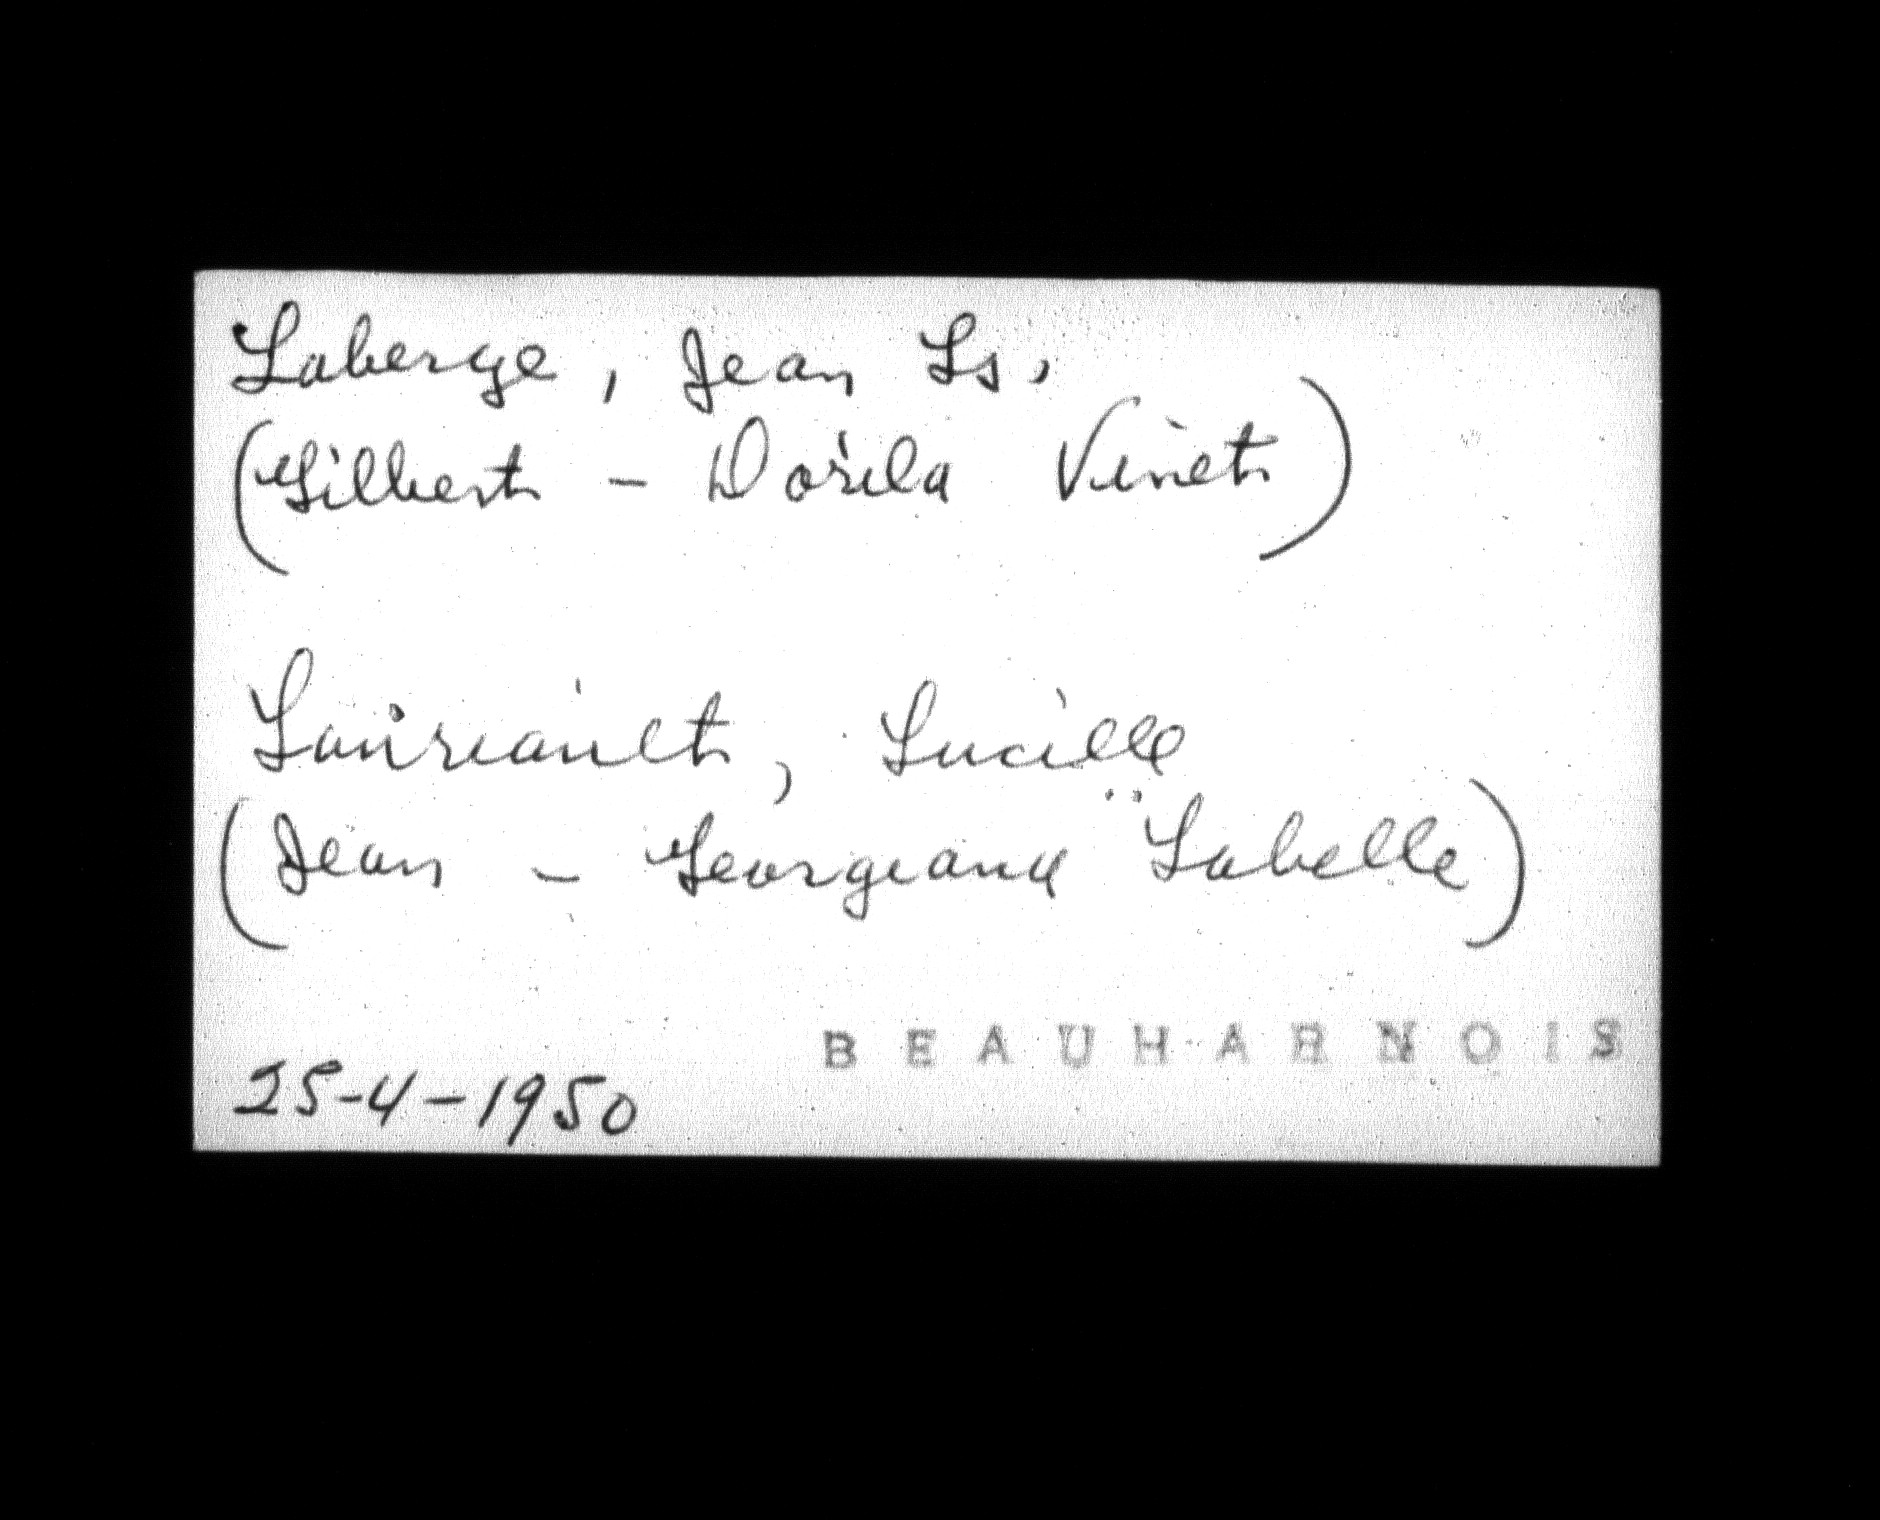 Laberge, Jean Ls,
(Gilbert - Dorila Vinet)
Lauriault, Lucille
(Jean - Georgeana Labelle)
BEAUHARNOIS
25-4-1950